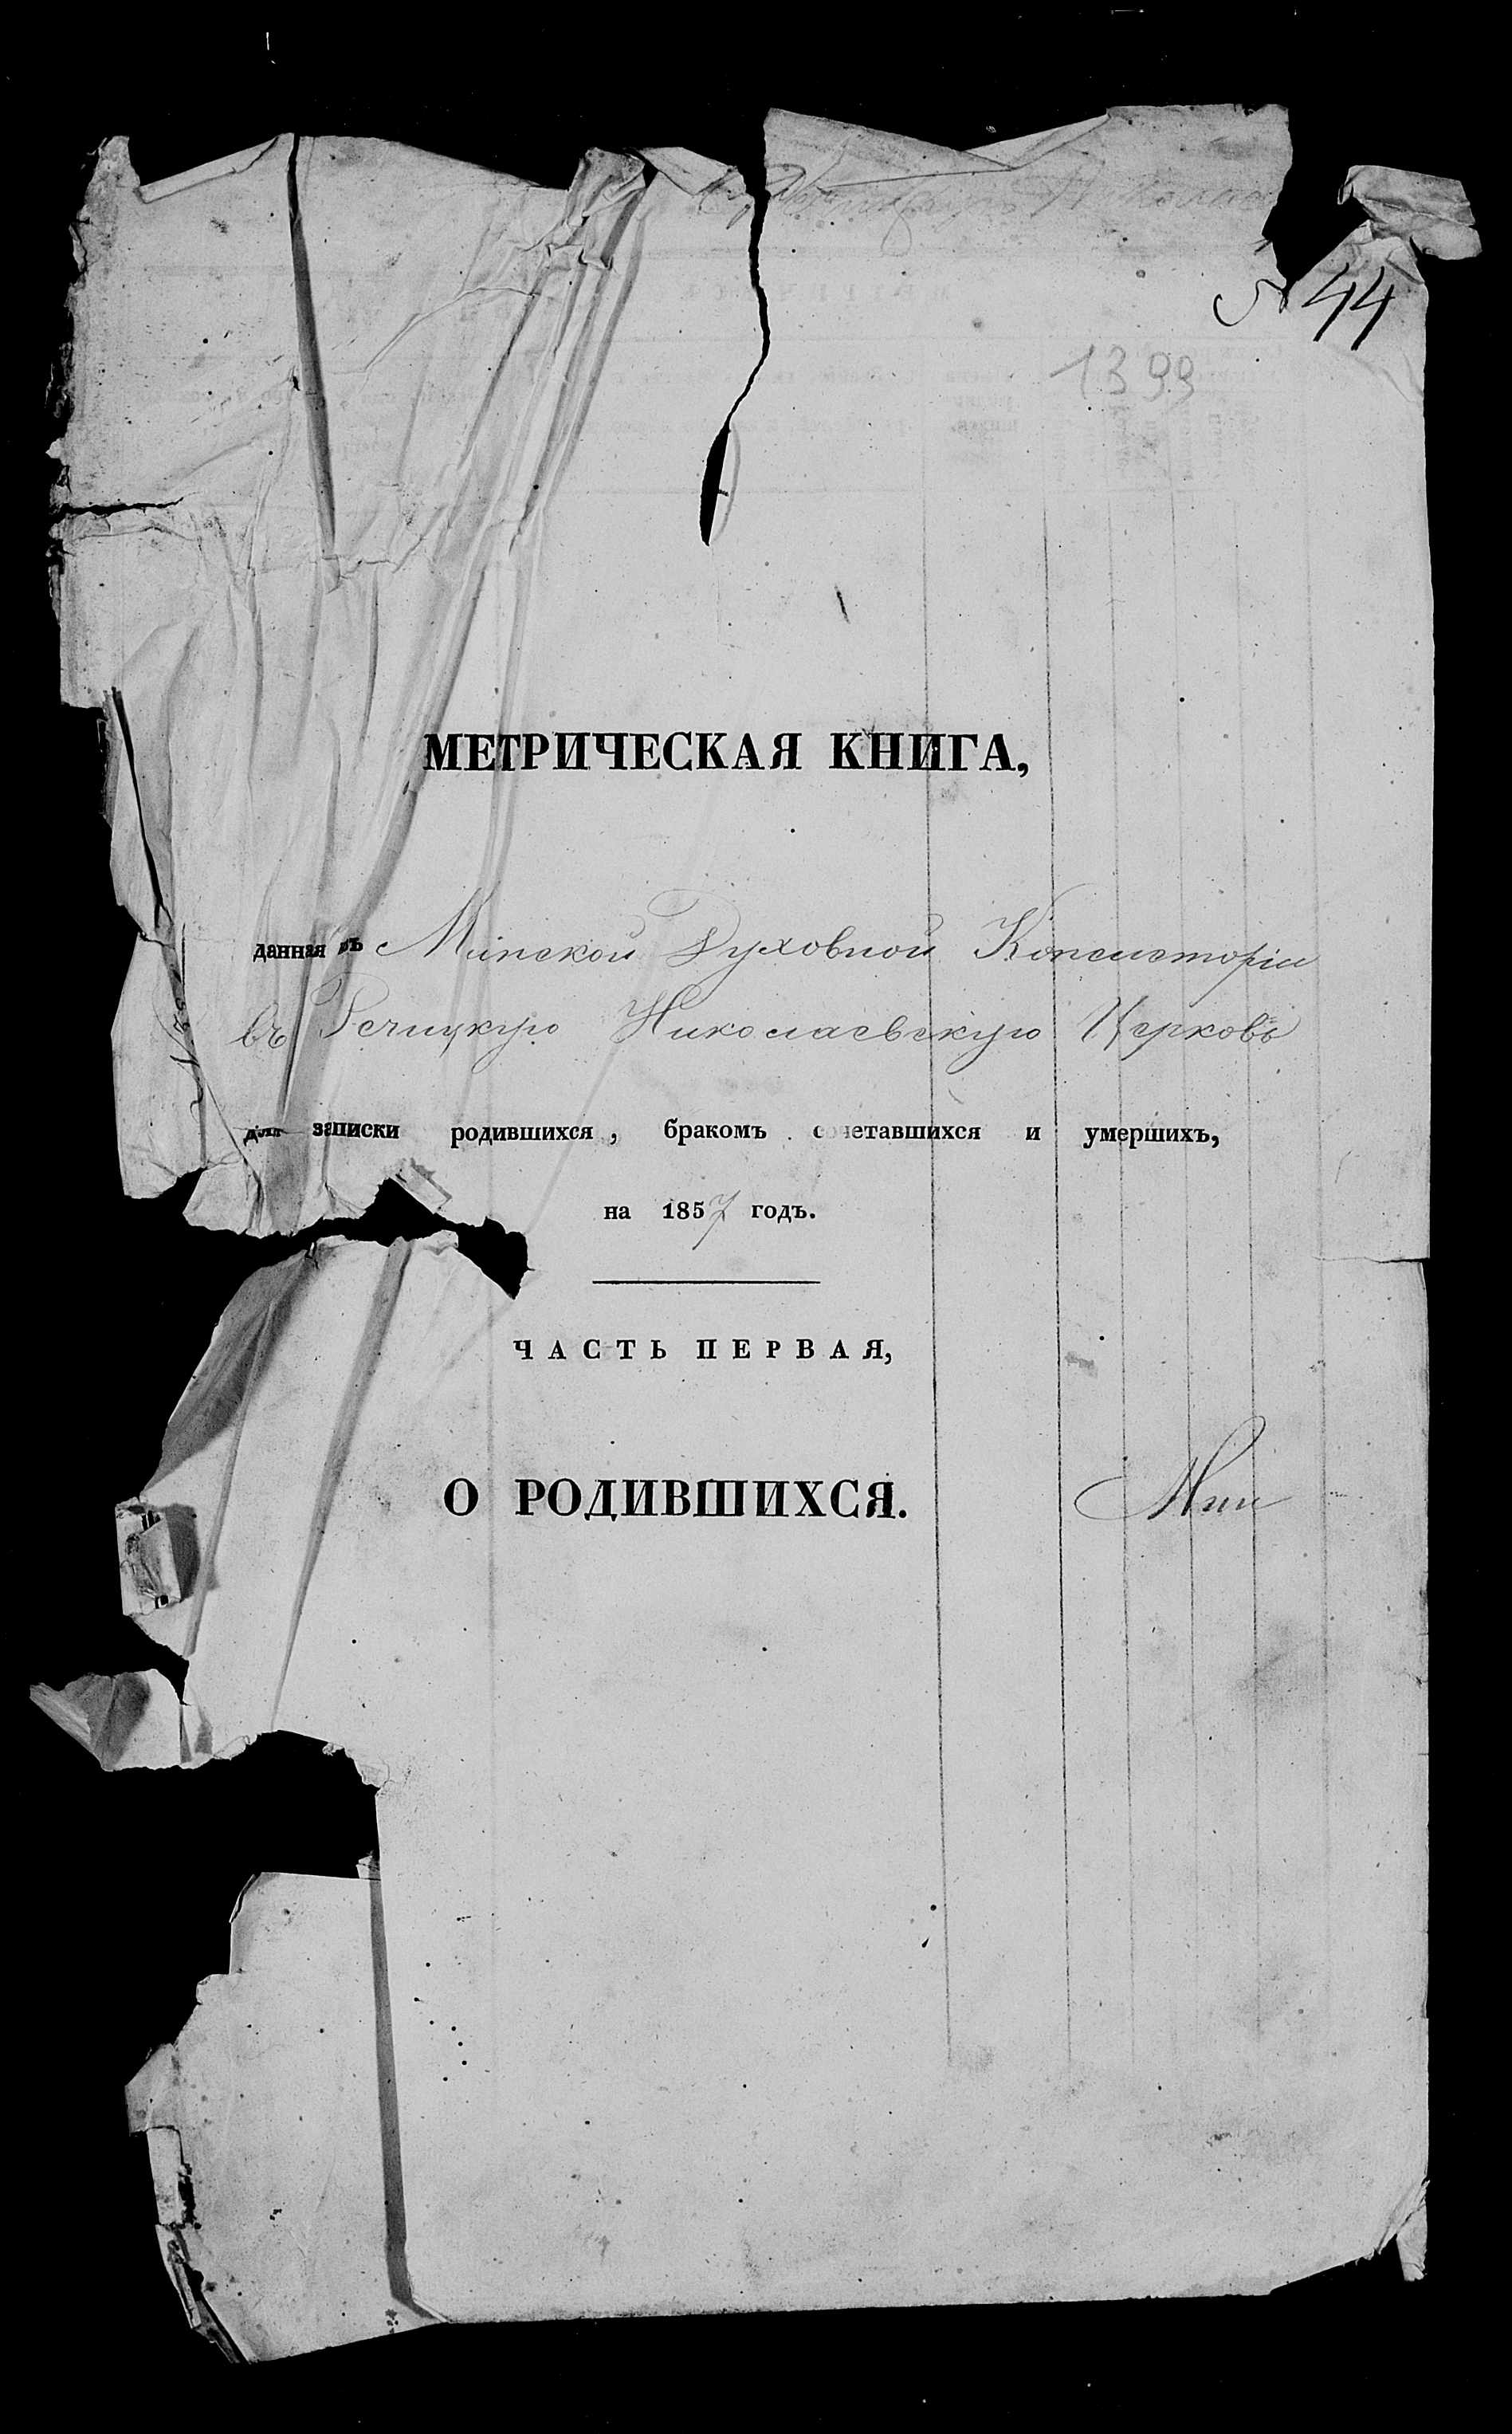 № 44
1399
МЕТРИЧЕСКАЯ КНИГА,
данная въ Минской Духовной Консисторіи
въ Речицкую Николаевскую Церковь
для записки родившихся, бракомъ сочетавшихся и умершихъ,
на 1857 годъ.
ЧАСТЬ ПЕРВАЯ,
О РОДИВШИХСЯ.